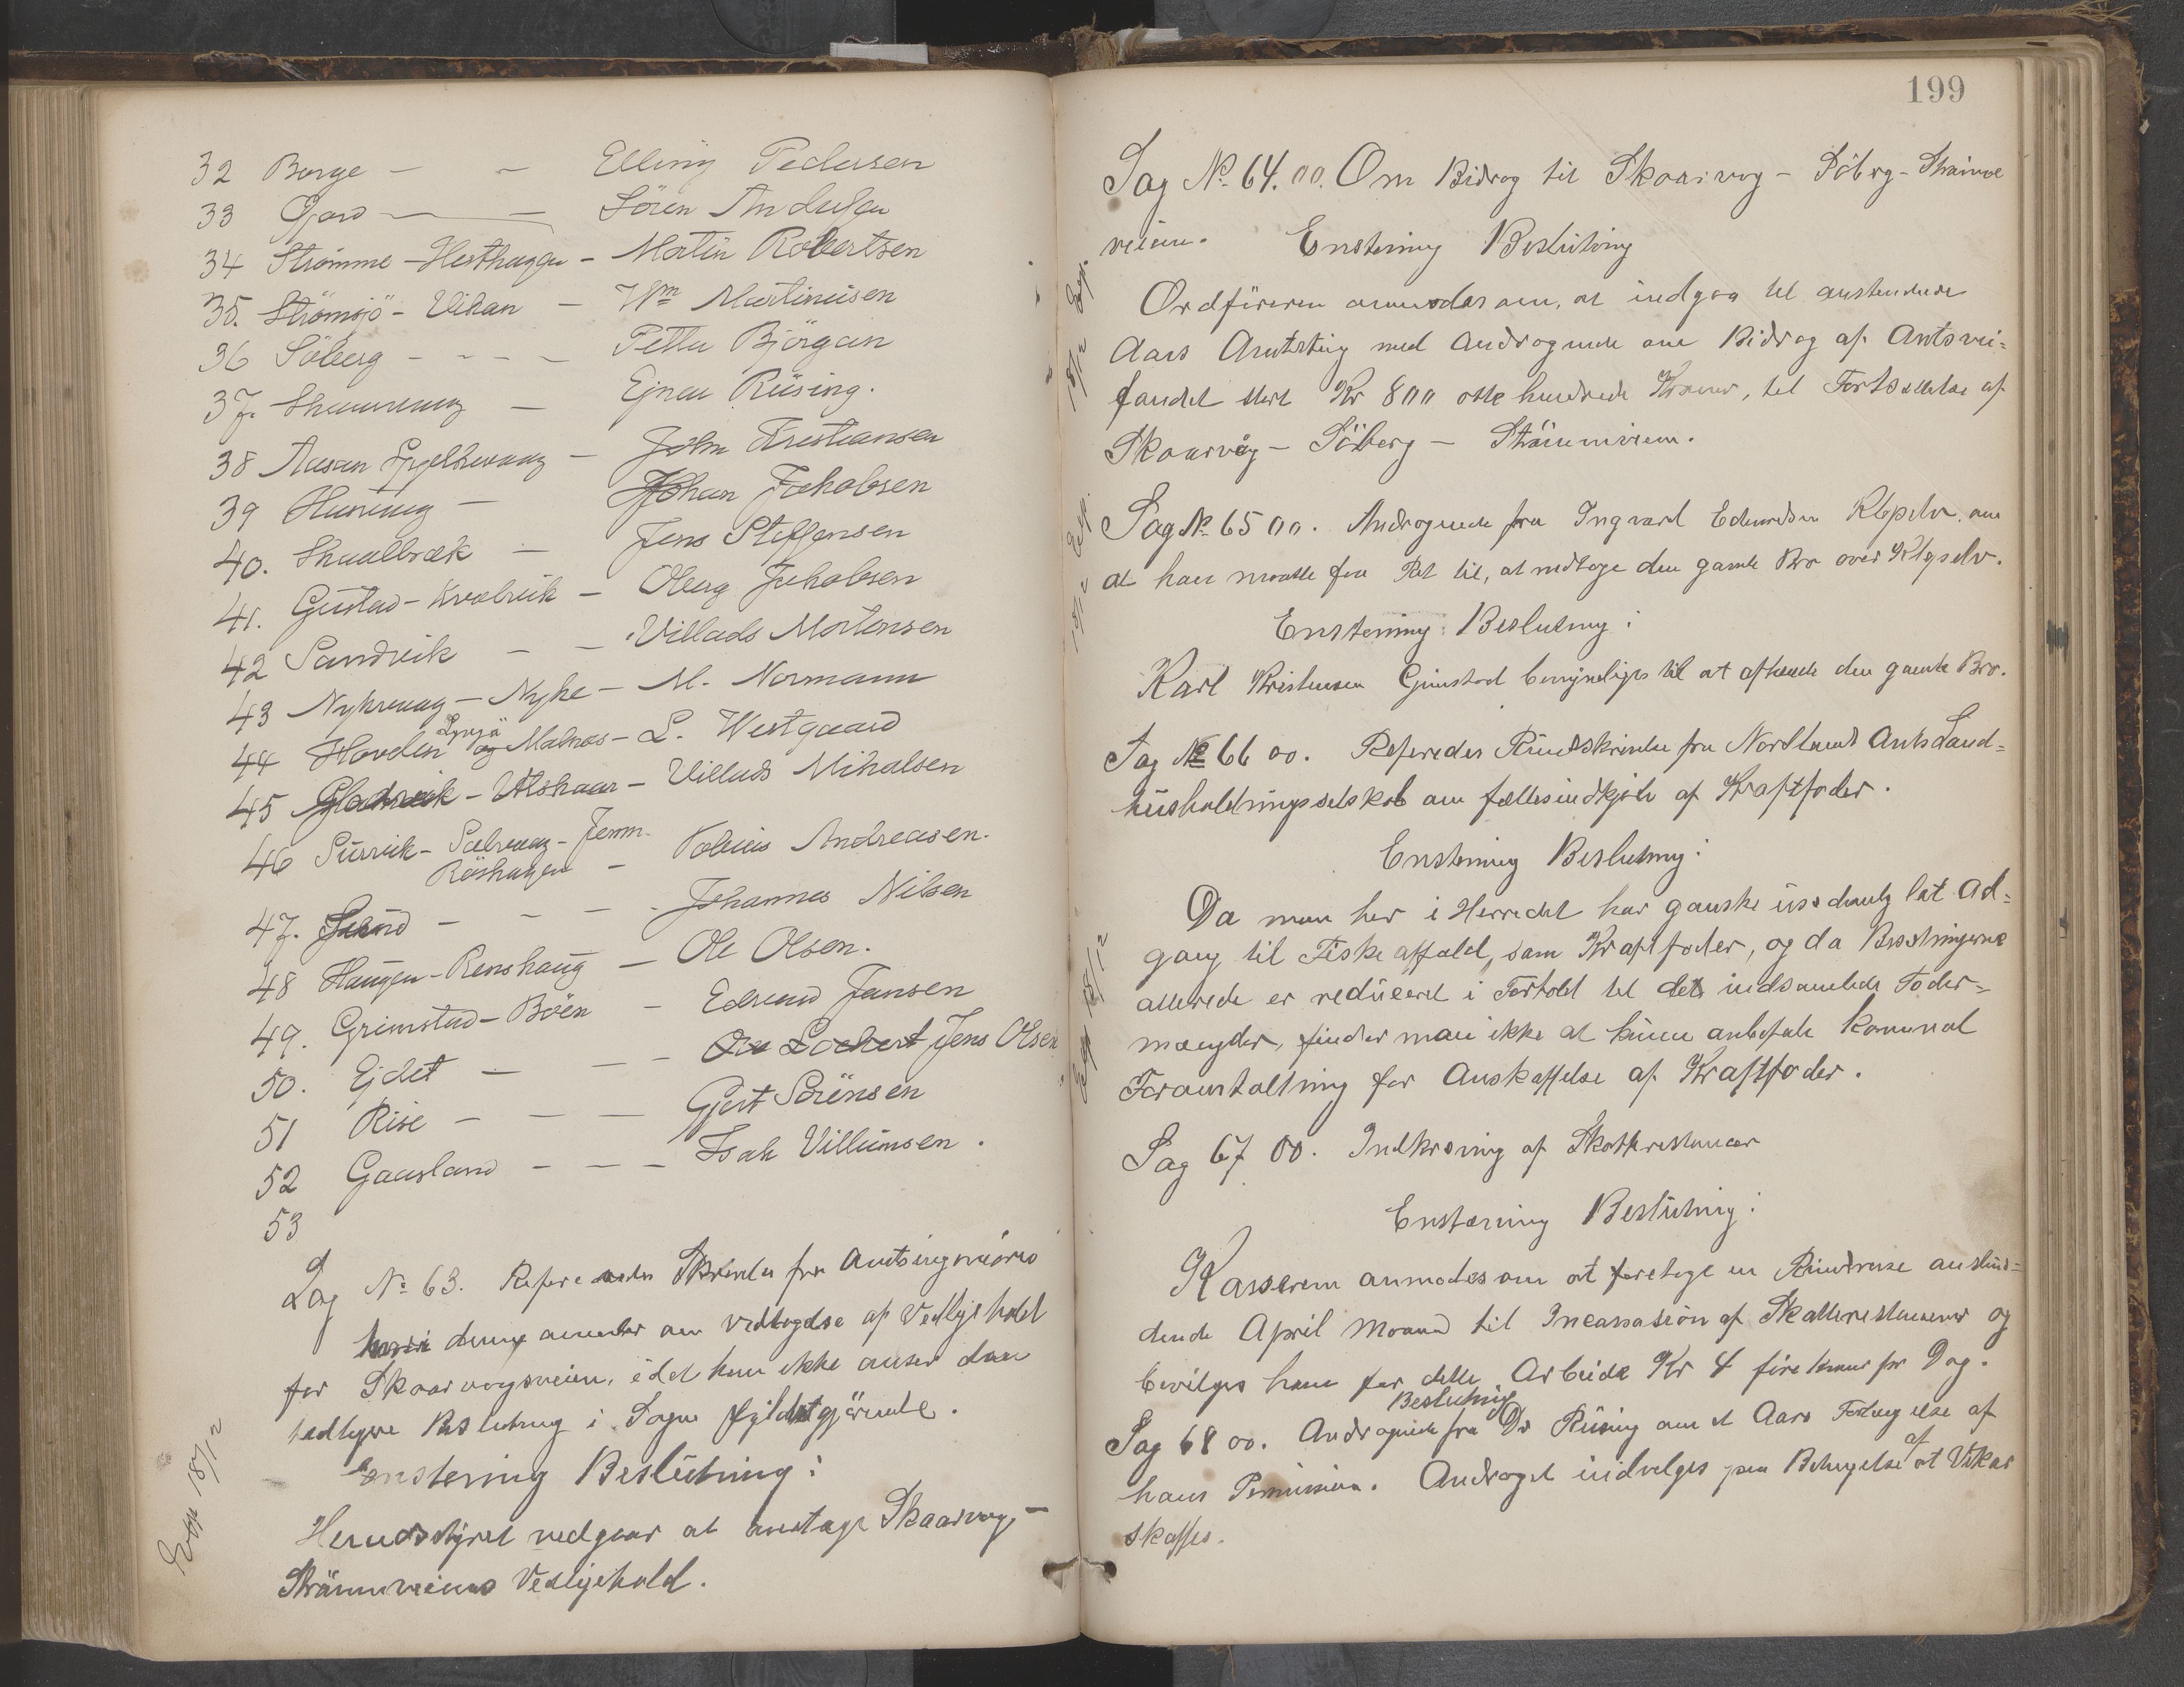 32 Borge - - Elling Pedersen
33 Gjerd - - Sören Andersen
34 Strømme - Hesthaggen - Martin Robertsen
35. Strömsjö - Vikan - Wm Martinusen
36 Söberg - - - - Petter Björgan
37. - Ejnar Rüsing.
38 Aasan - John Kristiansen
39 - Johan Jakobsen
40. Skaalbræk - Jens Steffensen
41. Gustad - Kvalvik - Oberg Jakobsen
42 Sandvik - - Villads Mortensen
43 Nykvaag - Nyke - M. Normann
Lynjö
44 Hovden og Malnæs - L. Westgaard
45 - Utskaar - Villads Mikalsen
46 Survik - - Jenn.
Röshagen - Tobias Andreasen.
47. - - - Johannes Nilsen
48 Haugen - Renshaug - Ole Olsen.
49. Grimstad - Böen - Edvard Jensen
50. Ejdet - - Ole Lockert Jens Olsen
51 Rise - - - Gjert Sörensen
52 Gaasland - - - Isak Villumsen.
53
Sag No 63. Skrivelse fra Amtsingeniøren
hvori denne anmoder om vedtagelse af Vedligehold
for Skaarvaagveien, idet han ikke anser den
tidligere Beslutning i Sagen fyldestgjörende.
Enstemig Beslutning:
Exp 18/12
Herredsstyret vedgaar at overtage Skaarvaag -
Strömmveiens Vedligehold.
199
Sag No 64.00. Om Bidrag til Skaarvaag - Söberg - Strömme
veien. Enstemig Beslutning
18/12 Exp.
Ordföreren anmodes om, at indgaa til anstundende
Aars Amtsting med Andragende om Bidrag af Amtsvei=
fondet stort Kr 800 otte hundrede Kroner, til Fortsættelse af
Skaarvåg - Söberg - Strömmveien.
18/12 Exp.
Sag No 65 00. Andragende fra Ingvard Edvardsen Klepelv. om
at han maatte faa Ret til, at nedtage den gamle Bro over Klepelv.
Enstemig Beslutning:
Karl Kristensen Grimstad bemyndiges til at afhænde den gamle Bro.
Sag No 66 00. Refereredes Rundskrivelse fra Nordlands Amts Land=
husholdningsselskab om fællesindkjöb af Kraftfoder.
Enstemig Beslutning:
Da man her i Herredet har ganske let Ad=
gang til Fiskeaffald, som Kraftfoder, og da Besætningerne
Exp 18/12
allerede er reduceret i Forhold til det indsamlede Foder=
mængder, finder man ikke at kunne anbefale komunal
Foranstaltning for Anskaffelse af Kraftfoder.
Sag 67 00. Indkræving af Skatterestancer
Enstemig Beslutning:
Kassereren anmodes om at foretage en Rundreise anstun=
dende April Maaned til Incassasion af Skatterestancer og
bevilges ham for dette Arbeide Kr 4 fire kroner pr Dag.
Beslutning
Sag 68 00. Andragende fra Dr Rüsing om et Aars Forlængelse af
hans Permission. Andraget indvilges paa Betingelse af at Vikar
skaffes.